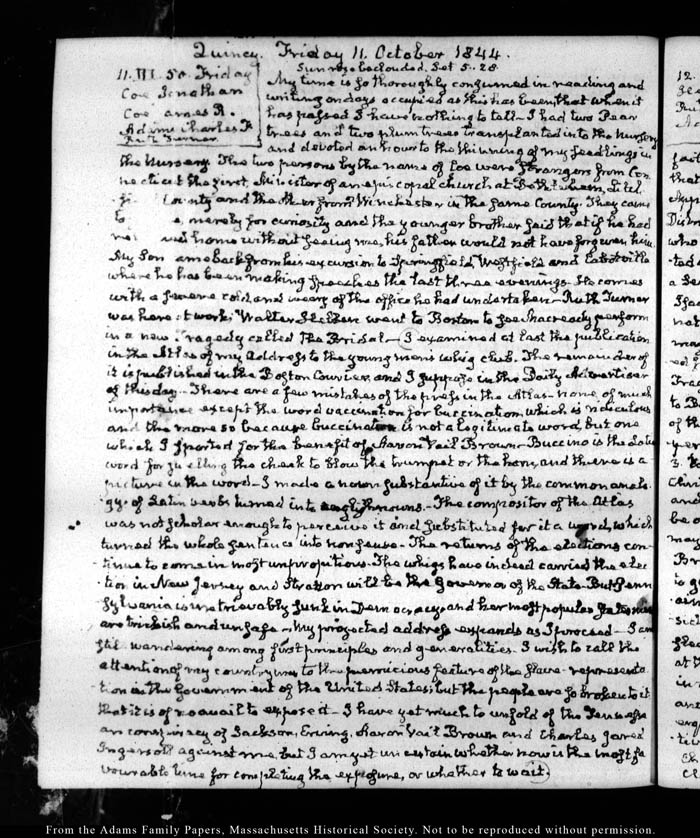 Quincy. Friday 11. October 1844.
11. III. 50. Friday
Sun rose beclouded. Set 5-28
Coe Jonathan
Coe James R.
Adams Charles F.
Ruth Turner
My time is so thoroughly consumed in reading and
writing on days occupied as this has been that when it
has passed I have nothing to tell — I had two Pear
trees and two plum trees transplanted into the Nursery
and devoted an hour to the thinning of my seedlings in
the Nursery. The two persons by the name of Coe were Strangers from Con-
necticut the first, Minister of an episcopal church at Bethlehem, Litch-
County and the other from Winchester in the same County. They came
merely for curiosity and the younger brother said that if he had
home without seeing me, his father would not have forgiven him.
My Son came back from his excursion to Springfield, Westfield and Cabotville
where he has been making Speeches the last three evenings. He comes
with a severe cold and weary of the office he had undertaken — Ruth Turner
was here at work; Walter went to Boston to see Macready perform
in a new Tragedy called the Bridal — I examined at last the publication
in the Atlas of my Address to the young men's whig club. The remainder of
it is published in the Boston Courier, and I suppose in the Daily Advertiser
of this day — There are a few mistakes of the press in the Atlas — none of much
importance except the word vaccination for buccination, which is ridiculous
and the more so because buccination is not a legitimate word, but one
which I sported for the benefit of Aaron Vail Brown — Buccino is the Latin
word for swelling the cheek to blow the trumpet or the horn, and there is a
picture in the word — I made a noun substantive of it by the common analo-
gy of Latin verbs turned into english nouns. — The compositor of the Atlas
was not scholar enough to perceive it and substituted for it a word, which
turned the whole sentence into nonsense — The returns of the elections con-
tinue to come in most unpropitious. The whigs have indeed carried the elec-
tion in New Jersey and Stratton will be the Governor of the State. But Penn-
sylvania is irretrievably sunk in Democracy and her most popular Statesmen
are trickish and unsafe — My projected address expands as I proceed — I am
still wandering among first principles and generalities. I wish to call the
attention of my countrymen to the pernicious feature of the slave-representa-
tion in the Government of the United States; but the people are so broken to it
that it is of no avail to exposed — I have yet much to unfold of the Tennesse-
an conspiracy of Jackson, Erving, Aaron Vail Brown and Charles Jared
Ingersoll against me, but I am yet uncertain whether now is the most fa-
vourable time for completing the exposure, or whether to wait.
12.
From the Adams Family Papers, Massachusetts Historical Society. Not to be reproduced without permission.